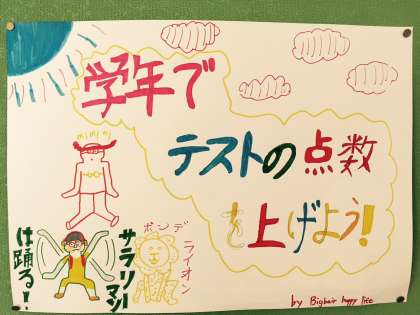 学年で
テストの点数
を上げよう!
ボンデ
ライオン
サラリーマン
は踊る!
by Bighair happy life